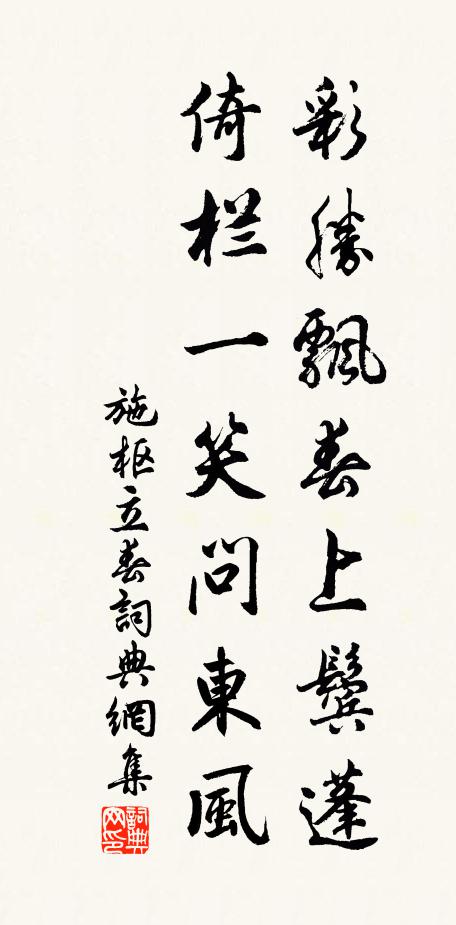 彩勝飄春上鬢蓬
倚栏一笑問東風
施枢立春詞典網集
詞典网印